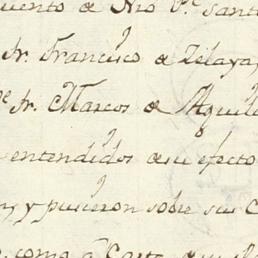 de Nro Pe. Sant
Fr. Francisco de Zelaya,
Fr. Marcos de Aguila
entendidos de su efecto
y pusieron sobre sus C
como a Carta